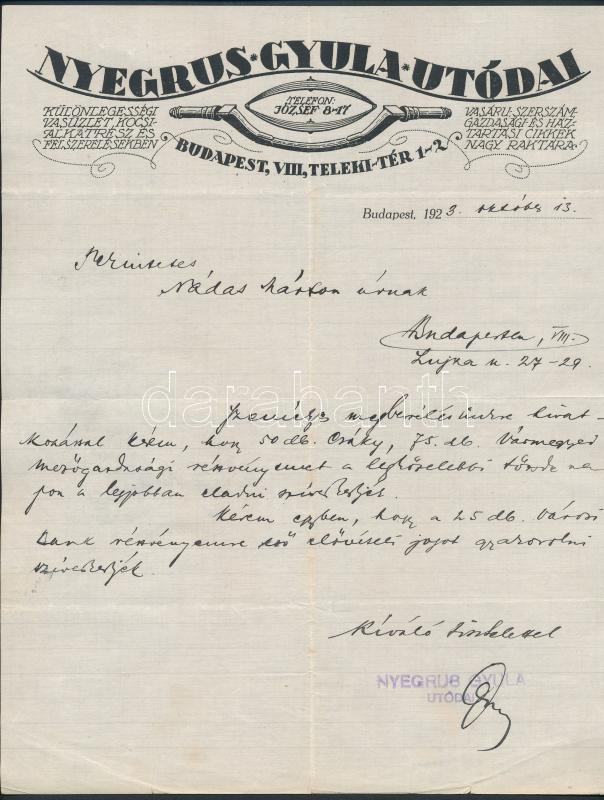 NYEGRUS * GYULA * UTÓDAI
KÜLÖNLEGESSÉGI
VASÜZLET, KOCSI-
ALKATRÉSZ ÉS
FELSZERELÉSEKBEN
TELEFON:
JÓZSEF 8-17
VASÁRU-SZERSZÁM-
GAZDASÁGI-ÉS HÁZ-
TARTÁSI CIKKEK
NAGY RAKTÁRA
BUDAPEST, VIII, TELEKI-TÉR 1-2
Budapest, 1923. október 13.
Tekintetes
Nádas Márton úrnak
Budapesten, VIII.
Lujza u. 27-29.
megbeszélésünkre hivat-
kozással kérem, hogy 50 db. Csáky, 75. db. Vármegyei
mezőgazdasági részvényemet a legközelebbi tőzsde na-
pon a legjobban eladni sziveskedjék.
Kérem egyben, hogy a 25 db. Városi
Bank részvényemre eső elővételi jogot gyakorolni
sziveskedjék.
Kiváló tisztelettel
NYEGRUS GYULA
UTÓDAI
darabanth